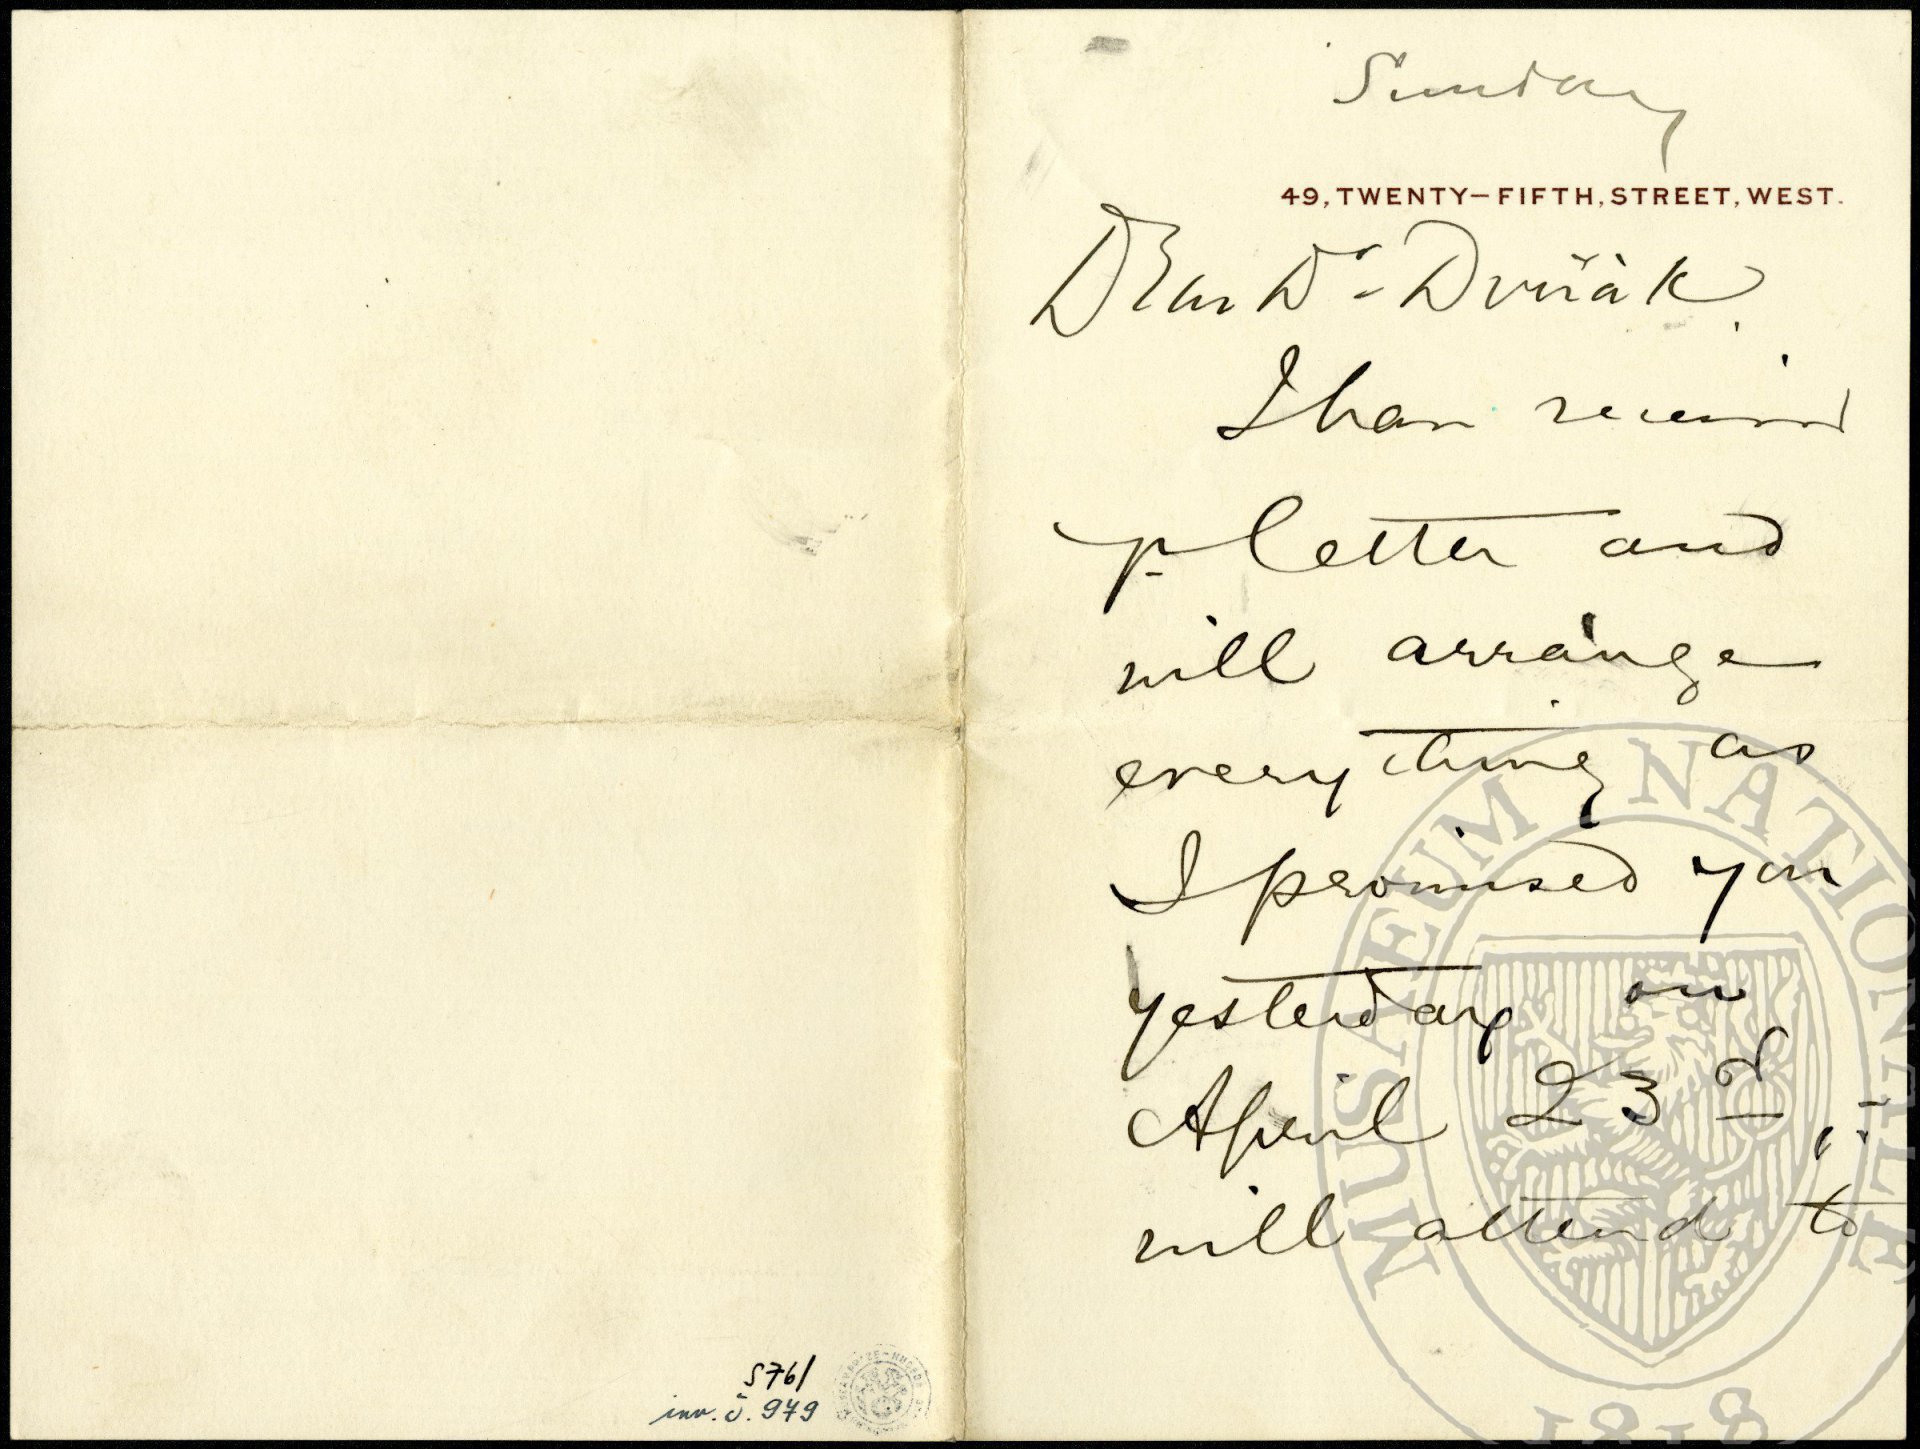 Sunday
49, TWENTY–FIFTH, STREET, WEST.
Dear Dr. Dvořák
I have received
yr. letter and
will arrange
everything as
I promised you
yesterday on
April 23d,
will attend to
MUSAEUM NATIONALE
1818
S76/
inv. č. 979